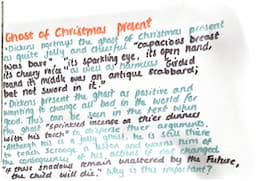 Ghost of Christmas present
• Dickens portrays the ghost of Christmas present
as quite jolly and cheerful "capacious breast
was bare", "its sparkling eye, its open hand,
its cheery voice" as well as harmless "Girded
round its middle was an antique scabbard;
but not sword in it".
• Dickens present the ghost as positive and
wanting to change all bad in the world for
good. This can be seen in the text when
the ghost "sprinkled incense on their dinner
with his torch" to disperse their arguments.
• Although this is a jolly ghost, he is still there
to teach scrooge a lesson and warns him of
the consequences of his actions if not changed
"if these shadows remain unaltered by the Future,
the child will die." Why is this important?